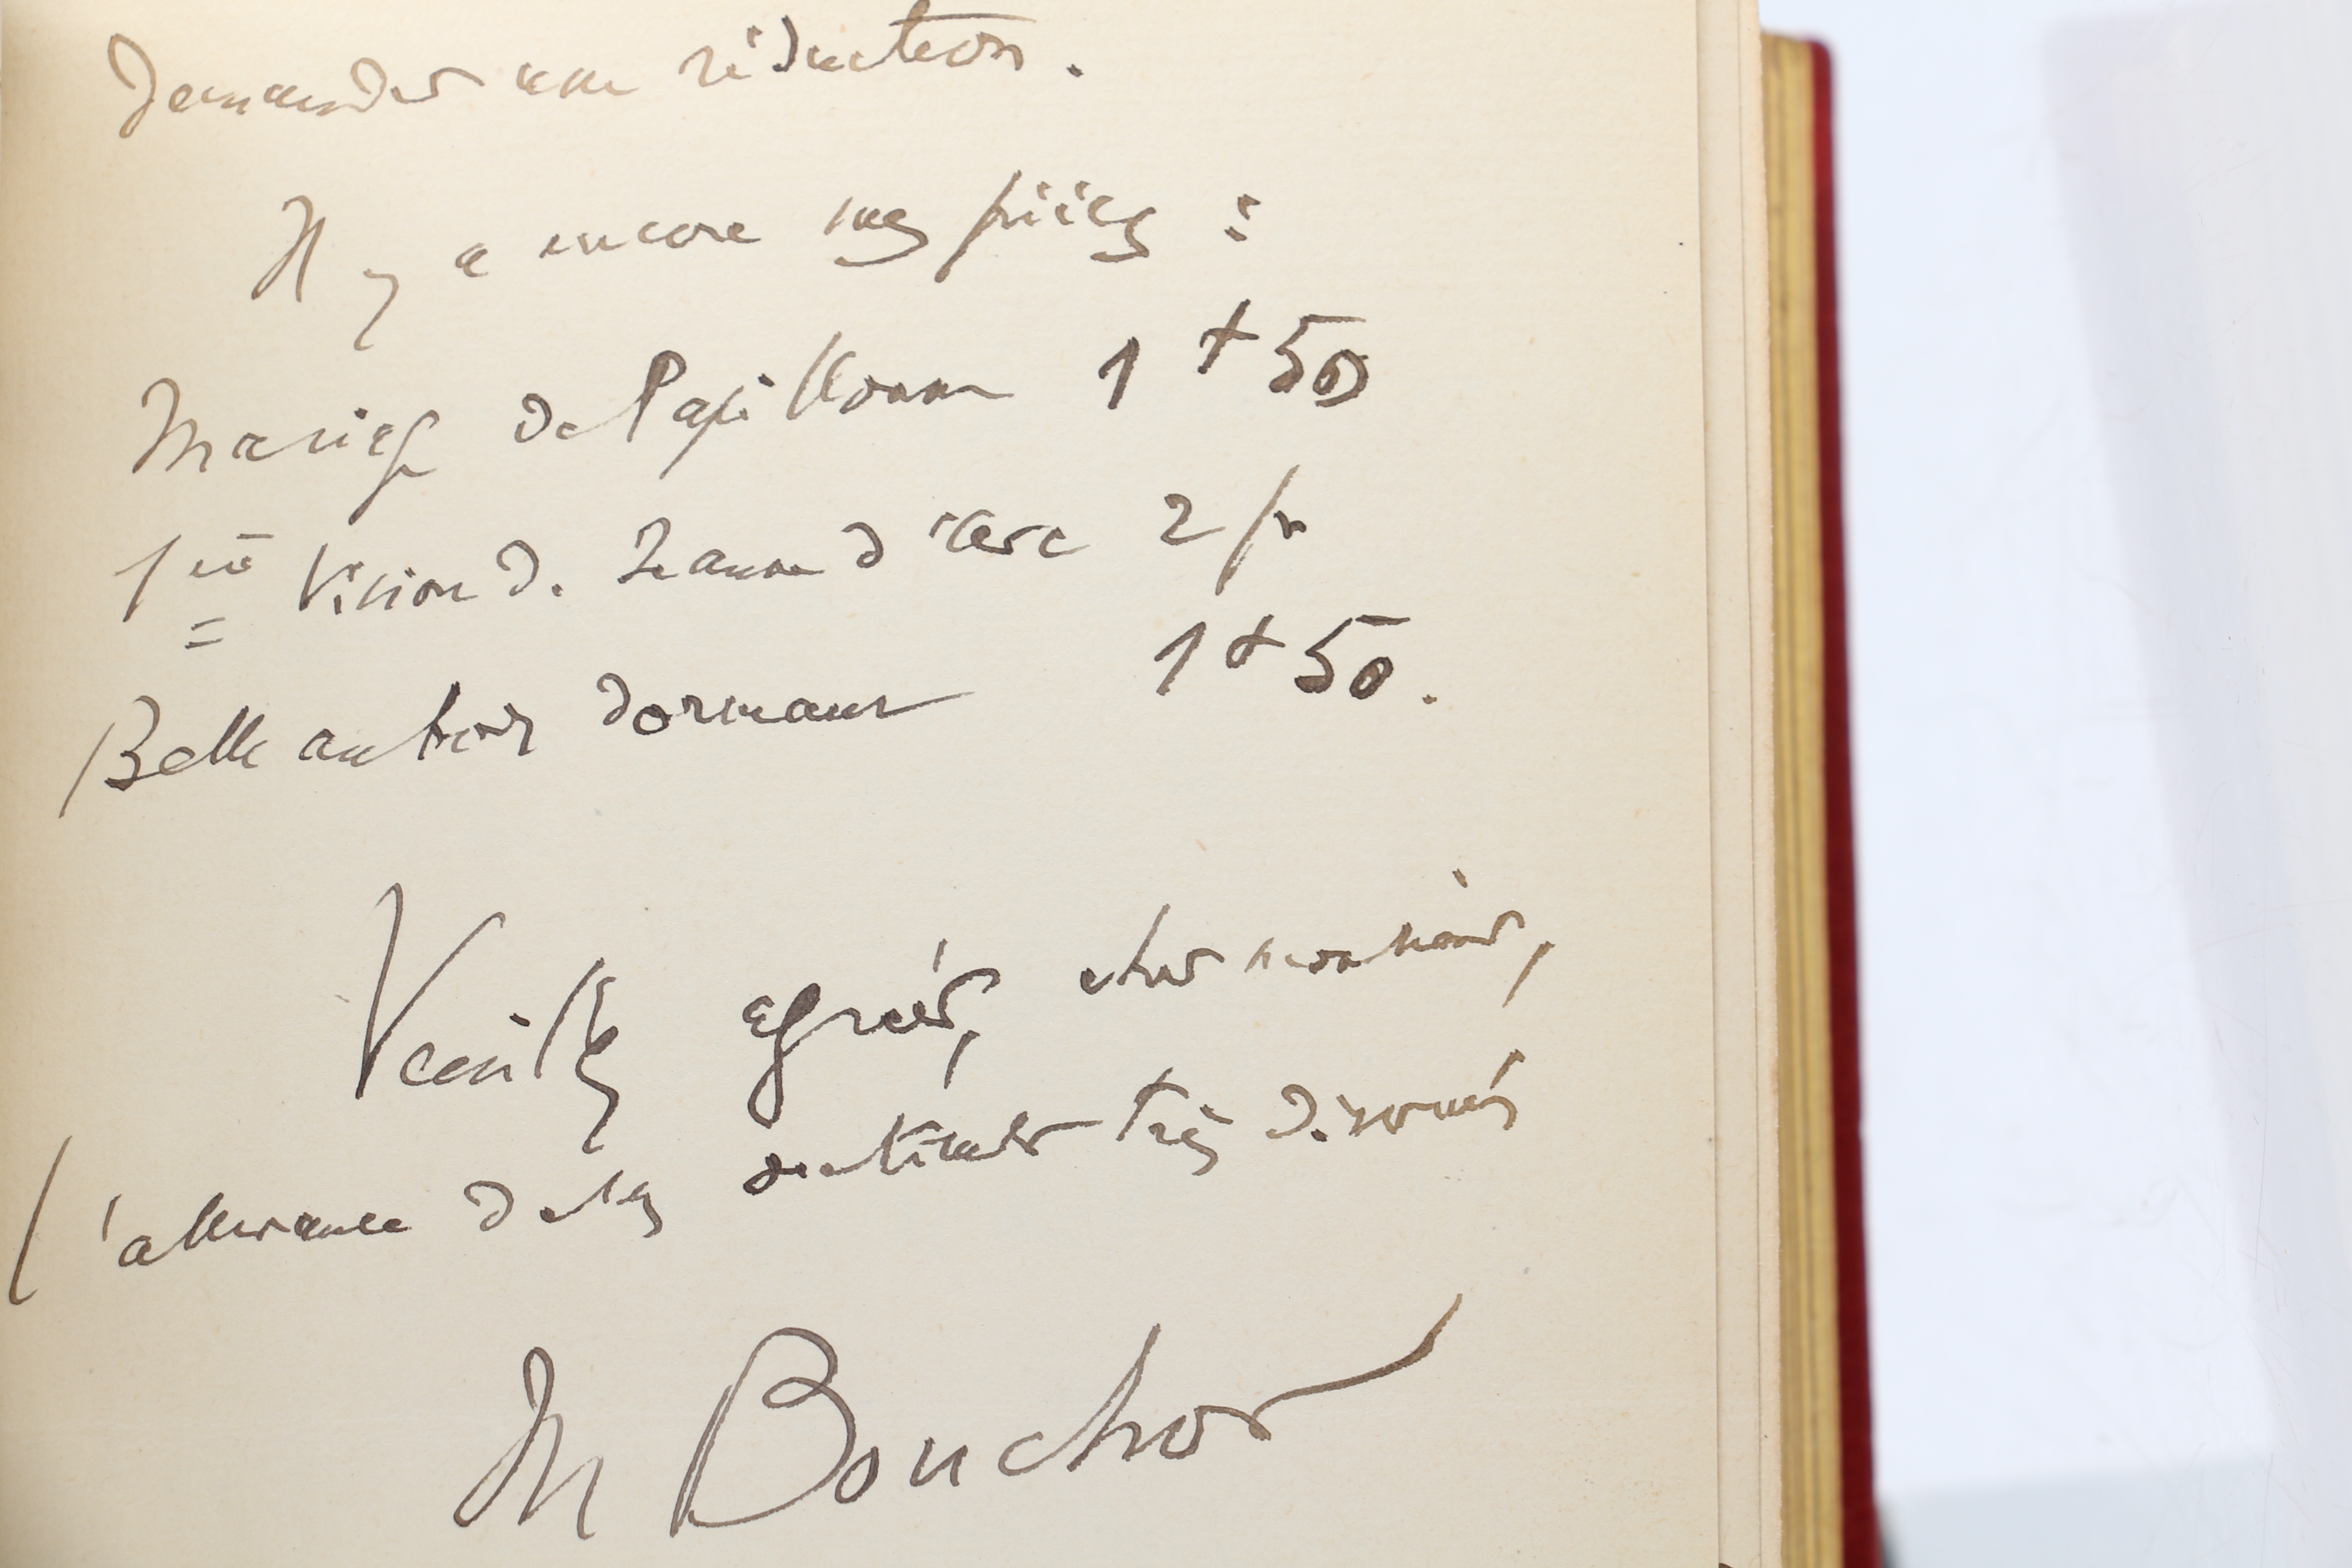 demander une réduction.
Il y a encore mes pièces :
Mariage de Papillonne 1 f 50
1ère Vision de Jeanne d'Arc 2 fr
Belle au bois dormant 1 f 50.
Veuillez agréer, cher monsieur,
l'assurance de mes sentiments très dévoués
M Bouchor